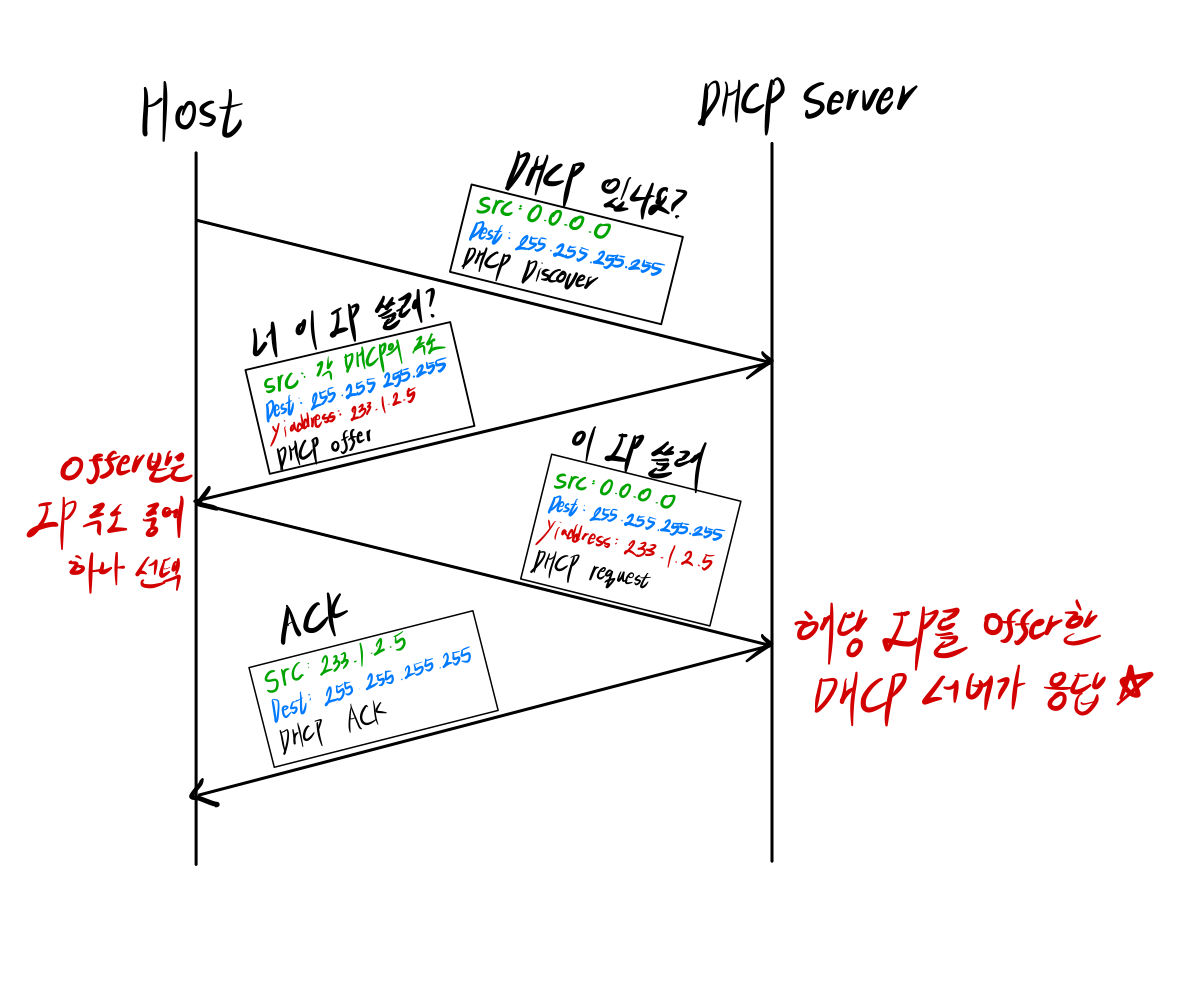 Host
DHCP Server
DHCP 있나요?
src: 0.0.0.0
Dest: 255.255.255.255
DHCP Discover
너 이 IP 쓸래?
src: 각 DHCP의 주소
Dest: 255.255 255.255
Yiaddress: 233.1.2.5
DHCP offer
Offer받은
IP 주소 중에
하나 선택
이 IP 쓸래
src: 0.0.0.0
Dest: 255.255.255.255
Yiaddress: 233.1.2.5
DHCP request
해당 IP를 Offer한
DHCP 서버가 응답 ☆
ACK
src: 233.1.2.5
Dest: 255 255.255.255
DHCP ACK